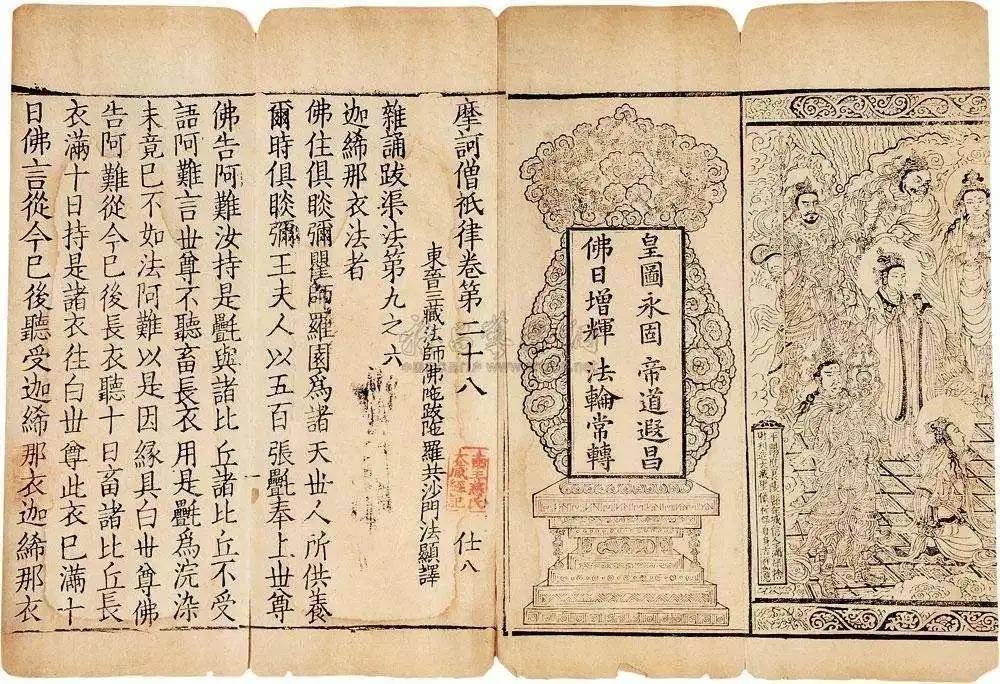 皇圖永固 帝道遐昌
佛日增輝 法輪常轉
摩訶僧祇律卷第二十八 仕八
東晉三藏法師佛陁跋陁羅共沙門法顯譯
雜誦跋渠法第九之六
迦絺那衣法者
佛住俱睒彌瞿師羅園為諸天丗人所供養
爾時俱睒彌王夫人以五百張氎奉上丗尊
佛告阿難汝持是氎與諸比丘諸比丘不受
語阿難言丗尊不聽畜長衣用是氎為浣染
未竟已不如法阿難以是因緣具白丗尊佛
告阿難從今已後長衣聽十日畜諸比丘長
衣滿十日持是諸衣往白丗尊此衣已滿十
日佛言從今已後聽受迦絺那衣迦絺那衣